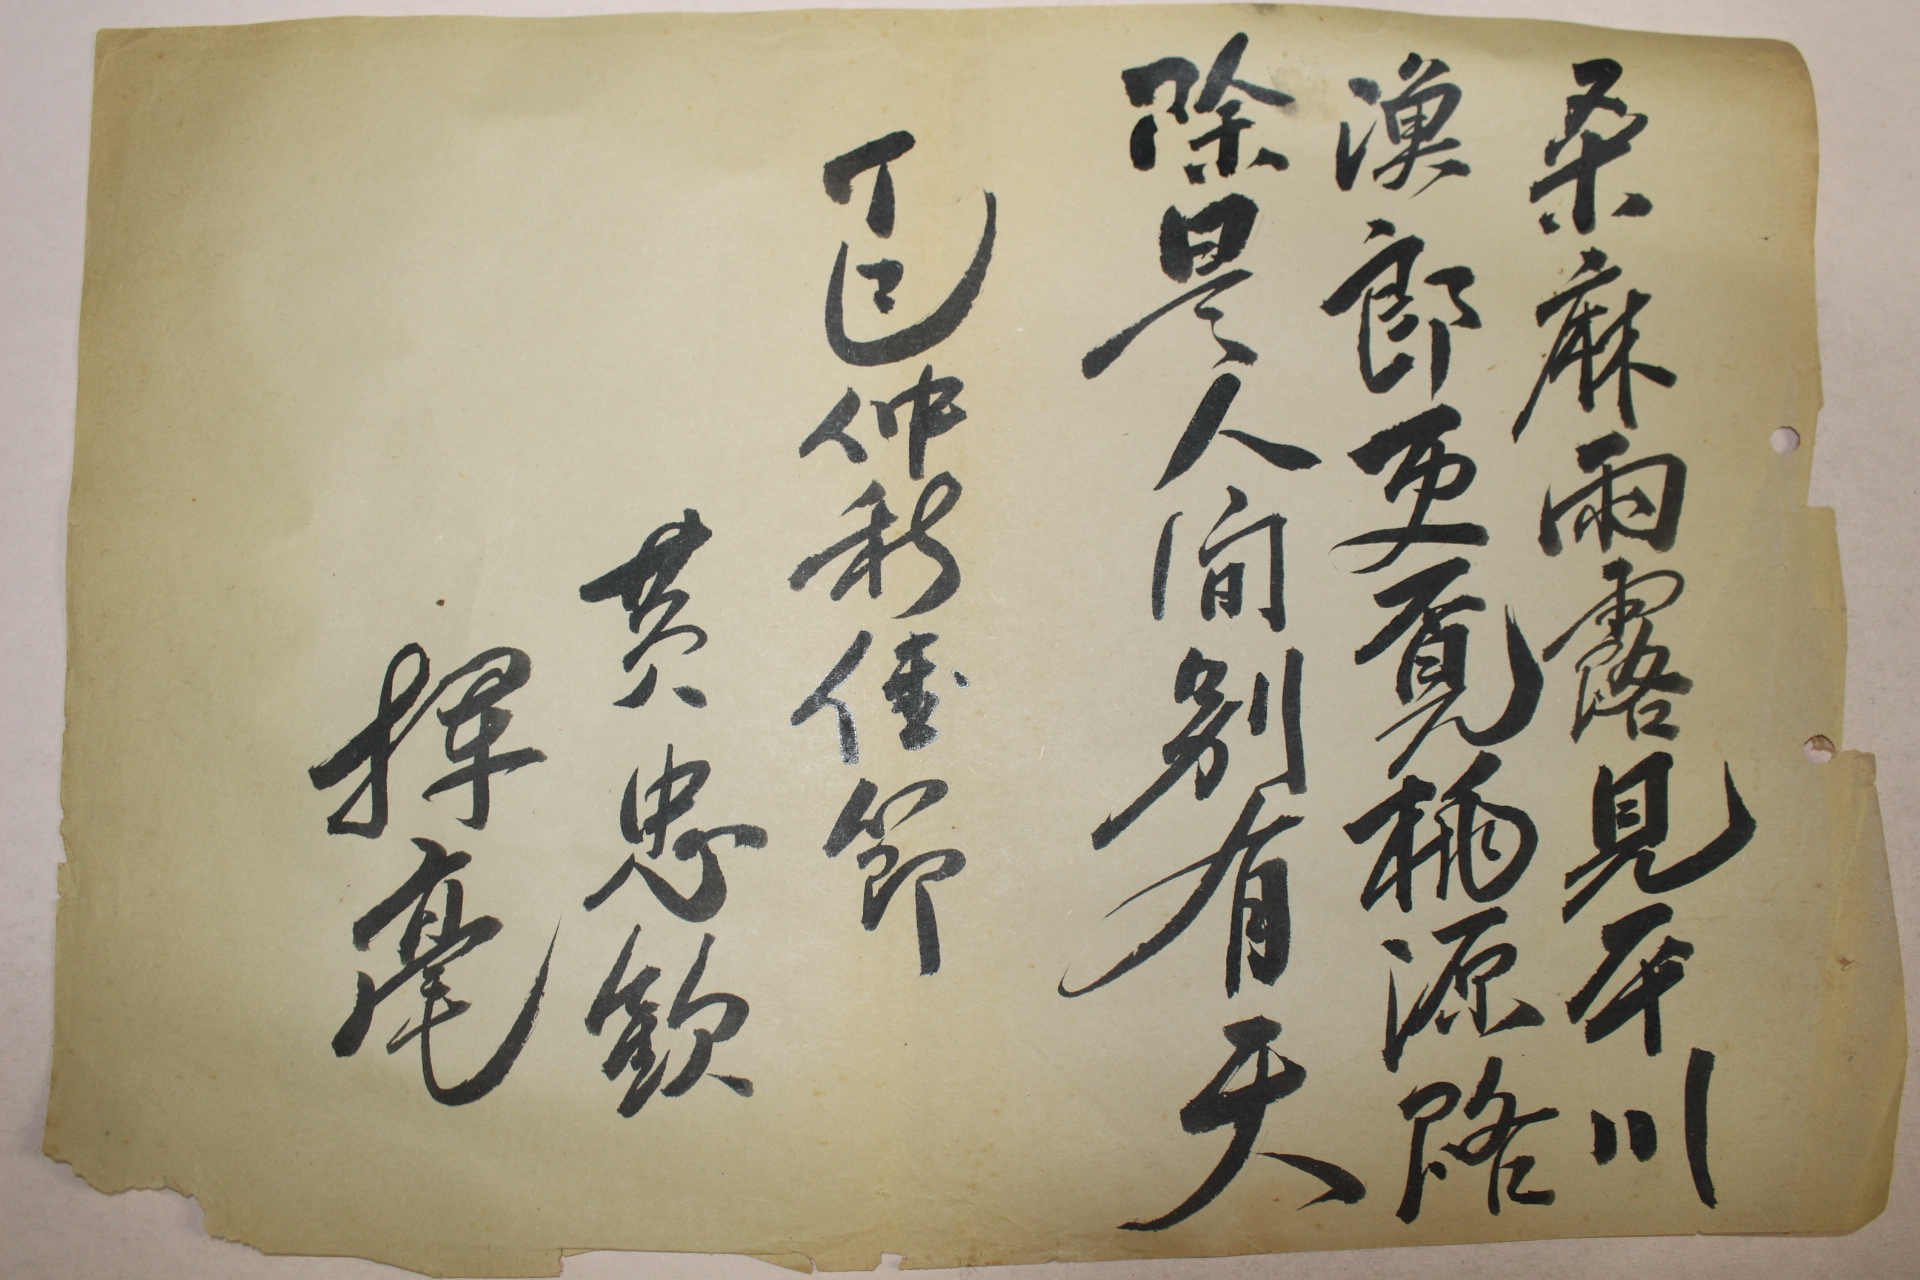 桑麻雨露見平川
漁郎更覓桃源路
除是人间别有天
丁巳仲秋佳節
黄忠欽
揮毫